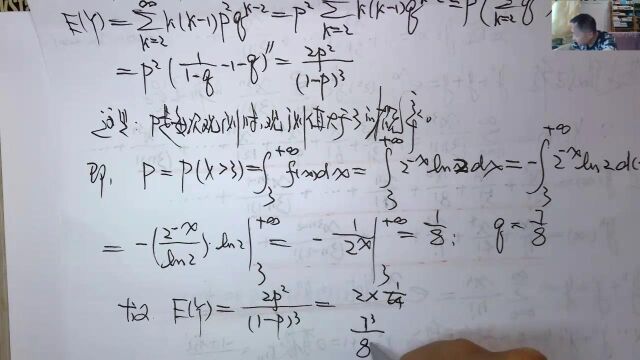 E(Y)=∑_{k=2}^{∞} k(k-1)p²q^{k-2}=p² ∑_{k=2} k(k-1)q^{k-2}=p²(∑_{k=2} q
=p²(1/(1-q) -1-q)″=2p²/(1-p)³
这里: p是每次观测时,观测值大于3的概率。
即, P=P(X>3)=∫_3^{+∞} f(x)dx=∫_3^{+∞} 2^{-x}ln2dx=-∫_3^{+∞} 2^{-x}ln2d(-
=-(2^{-x}/ln2)·ln2|_3^{+∞}=-1/2^x|_3^{+∞}=1/8; q=7/8
故 E(Y)=2p²/(1-p)³=2×1/64 / 7³/8